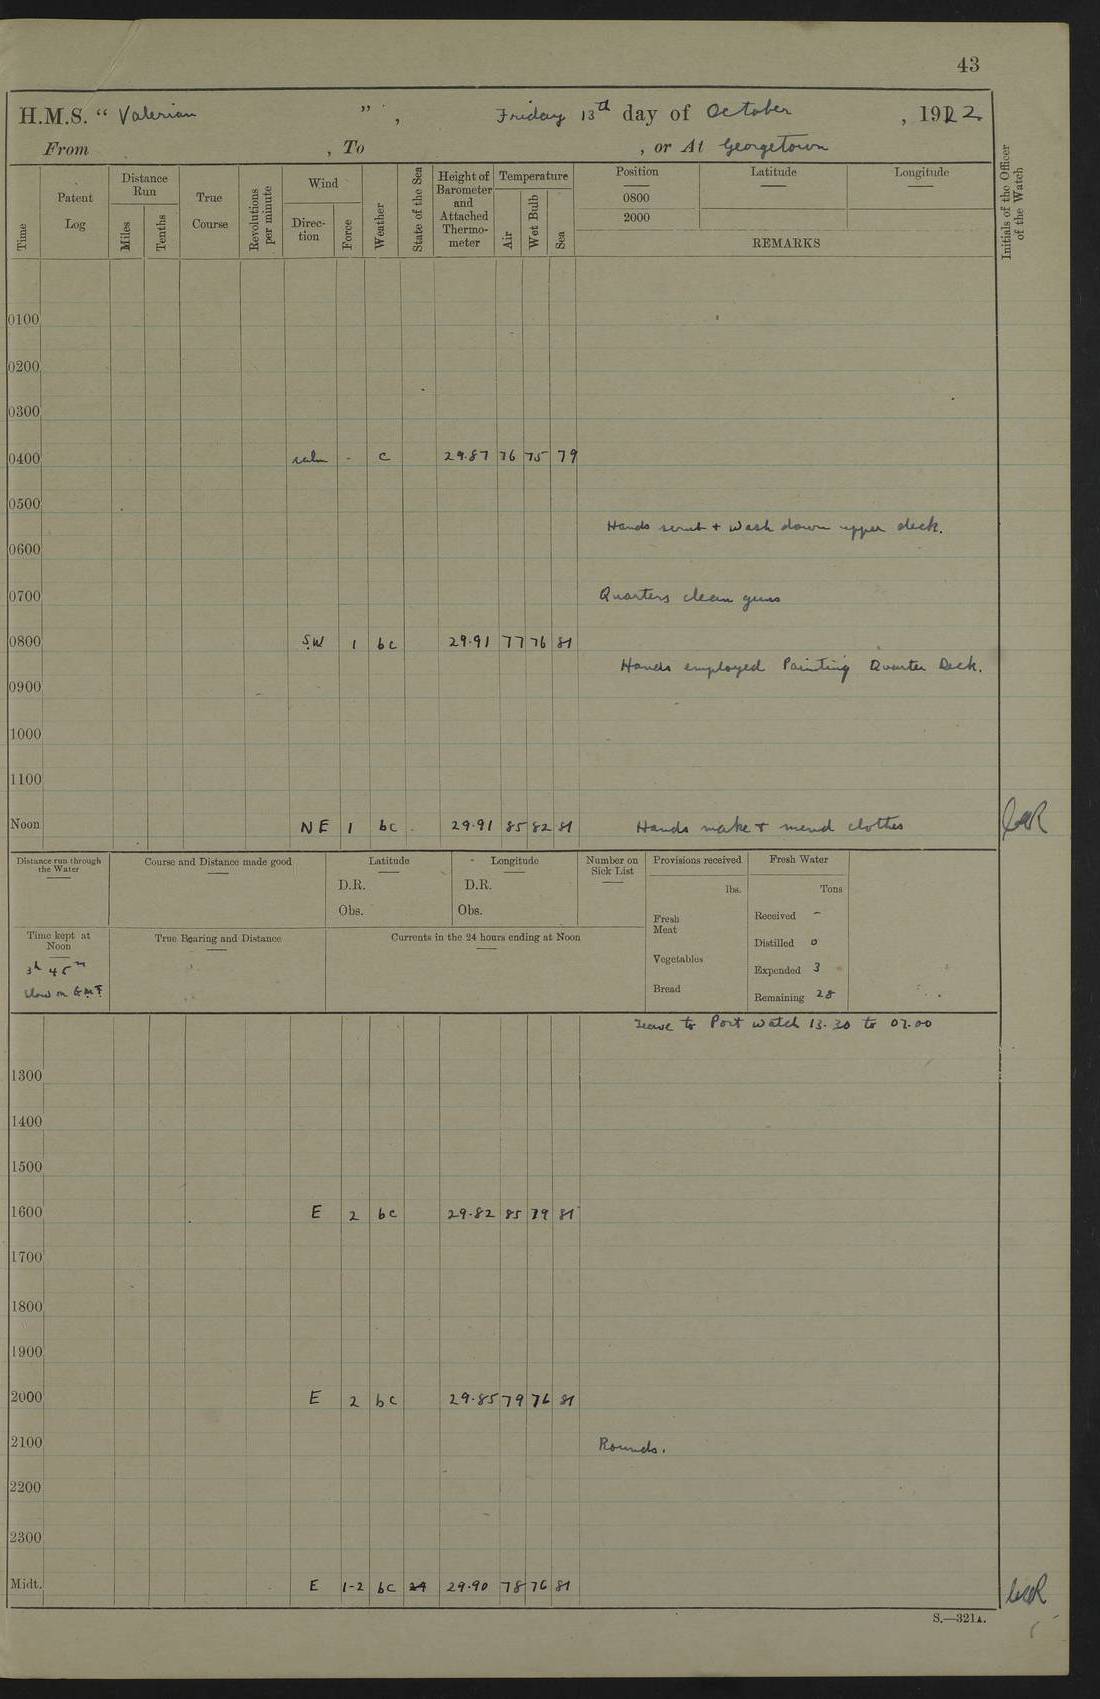 43
H.M.S. “ Valerian ” , Friday 13th day of October , 1922
From , To , or At Georgetown
Time
Patent Log
Distance Run
Miles
Tenths
True Course
Revolutions per minute
Wind
Direc- tion
Force
Weather
State of the Sea
Height of Barometer and Attached Thermo- meter
Temperature
Air
Wet Bulb
Sea
Position
0800
2000
Latitude
Longitude
REMARKS
Initials of the Officer of the Watch
0100
0200
0300
0400 calm - c 29.87 76 75 79
0500
Hands scrub + wash down upper deck.
0600
0700 Quarters clean guns
0800 SW 1 bc 29.91 77 76 81
Hands employed Painting Quarter Deck.
0900
1000
1100
Noon NE 1 bc 29.91 85 82 81 Hands make + mend clothes
Distance run through the Water
Course and Distance made good
Latitude
D.R.
Obs.
Longitude
D.R.
Obs.
Number on Sick List
Provisions received
lbs.
Fresh Meat
Vegetables
Bread
Fresh Water
Tons
Received -
Distilled 0
Expended 3
Remaining 28
Time kept at Noon
3h 45m
slow on G.M.T.
True Bearing and Distance
Currents in the 24 hours ending at Noon
Leave to Port watch 13.30 to 07.00
1300
1400
1500
1600 E 2 bc 29.82 85 79 81
1700
1800
1900
2000 E 2 bc 29.85 79 76 81
2100 Rounds.
2200
2300
Midt. E 1-2 bc 29 29.90 78 76 81
S.—321A.